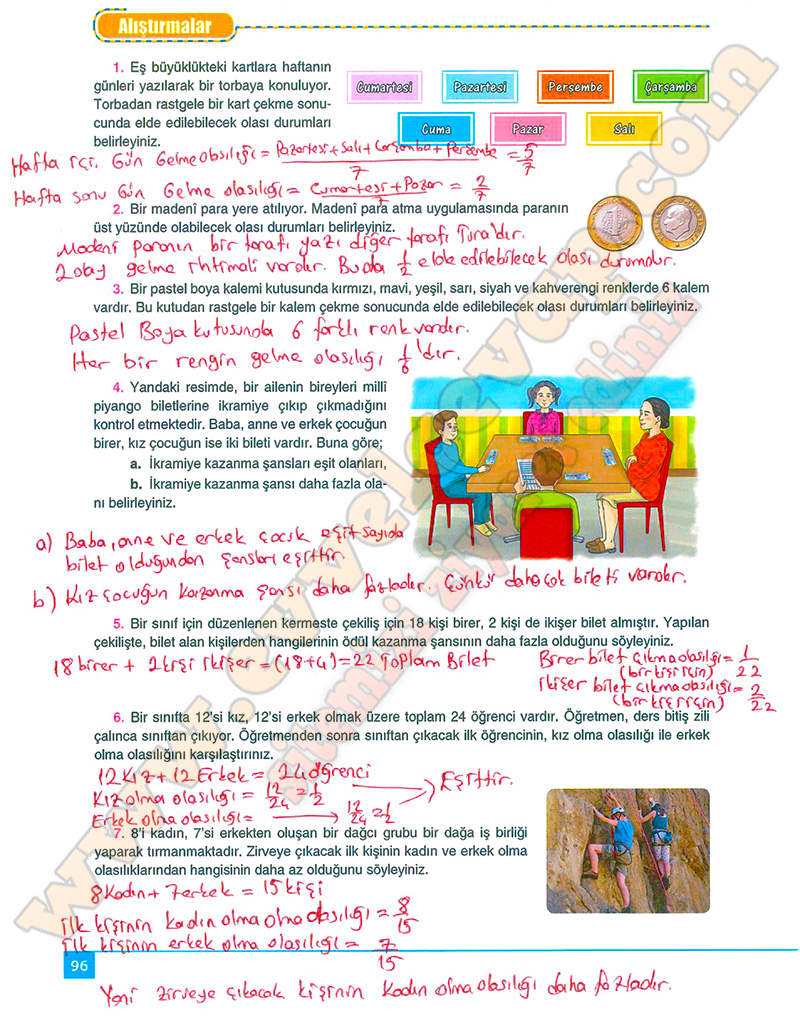 Alıştırmalar
1. Eş büyüklükteki kartlara haftanın
günleri yazılarak bir torbaya konuluyor.
Torbadan rastgele bir kart çekme sonu-
cunda elde edilebilecek olası durumları
belirleyiniz.
Cumartesi
Pazartesi
Perşembe
Çarşamba
Cuma
Pazar
Salı
Hafta içi Gün Gelme olasılığı = Pazartesi + Salı + Çarşamba + Perşembe / 7 = 5/7
Hafta sonu Gün Gelme olasılığı = Cumartesi + Pazar / 7 = 2/7
2. Bir madenî para yere atılıyor. Madenî para atma uygulamasında paranın
üst yüzünde olabilecek olası durumları belirleyiniz.
Madeni Paranın bir tarafı yazı diğer tarafı Tura'dır.
2 olay gelme ihtimali vardır. Bu da 1/2 elde edilebilecek olası durumdur.
3. Bir pastel boya kalemi kutusunda kırmızı, mavi, yeşil, sarı, siyah ve kahverengi renklerde 6 kalem
vardır. Bu kutudan rastgele bir kalem çekme sonucunda elde edilebilecek olası durumları belirleyiniz.
Pastel Boya kutusunda 6 farklı renk vardır.
Her bir rengin gelme olasılığı 1/6'dır.
4. Yandaki resimde, bir ailenin bireyleri millî
piyango biletlerine ikramiye çıkıp çıkmadığını
kontrol etmektedir. Baba, anne ve erkek çocuğun
birer, kız çocuğun ise iki bileti vardır. Buna göre;
a. İkramiye kazanma şansları eşit olanları,
b. İkramiye kazanma şansı daha fazla ola-
nı belirleyiniz.
a) Baba, anne ve erkek çocuk eşit sayıda
bilet olduğundan şansları eşittir.
b) Kız çocuğun kazanma şansı daha fazladır. Çünkü daha çok bileti vardır.
5. Bir sınıf için düzenlenen kermeste çekiliş için 18 kişi birer, 2 kişi de ikişer bilet almıştır. Yapılan
çekilişte, bilet alan kişilerden hangilerinin ödül kazanma şansının daha fazla olduğunu söyleyiniz.
18 birer + 2 kişi ikişer = (18+4) = 22 Toplam Bilet
Birer bilet çıkma olasılığı = 1/22
(bir kişi için)
ikişer bilet çıkma olasılığı = 2/22
(bir kişi için)
6. Bir sınıfta 12'si kız, 12'si erkek olmak üzere toplam 24 öğrenci vardır. Öğretmen, ders bitiş zili
çalınca sınıftan çıkıyor. Öğretmenden sonra sınıftan çıkacak ilk öğrencinin, kız olma olasılığı ile erkek
olma olasılığını karşılaştırınız.
12 Kız + 12 Erkek = 24 öğrenci
Kız olma olasılığı = 12/24 = 1/2
Erkek olma olasılığı = 12/24 = 1/2
Eşittir.
7. 8'i kadın, 7'si erkekten oluşan bir dağcı grubu bir dağa iş birliği
yaparak tırmanmaktadır. Zirveye çıkacak ilk kişinin kadın ve erkek olma
olasılıklarından hangisinin daha az olduğunu söyleyiniz.
8 Kadın + 7 erkek = 15 kişi
ilk kişinin kadın olma olma olasılığı = 8/15
ilk kişinin erkek olma olasılığı = 7/15
96
Yani zirveye çıkacak kişinin kadın olma olasılığı daha fazladır.
www.evvelcevap.com
sitemizi ziyaret ediniz